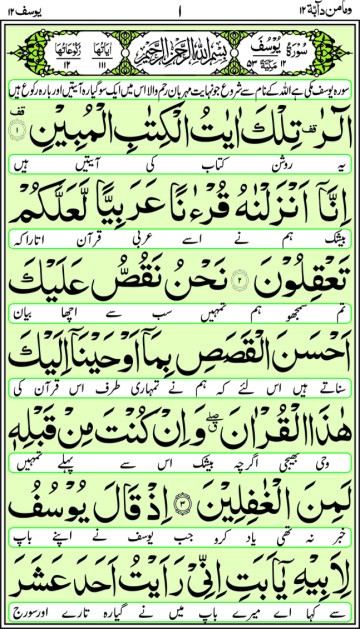 وما من دآبة ١٢ ١ يوسف ١٢
سورة يوسف ١٢ مكية ٥٣ بسم الله الرحمن الرحيم اياتها ١١١ ركوعاتها ١٢
سورہ یوسف مکی ہے اللہ کے نام سے شروع جو نہایت مہربان رحم والا اس میں ایک سو گیارہ آیتیں اور بارہ رکوع ہیں
الٓرٰ قف تِلْكَ اٰيٰتُ الْكِتٰبِ الْمُبِيْنِ ۱ قف
یہ روشن کتاب کی آیتیں ہیں
اِنَّاۤ اَنْزَلْنٰهُ قُرْءٰنًا عَرَبِيًّا لَّعَلَّكُمْ
بیشک ہم نے اسے عربی قرآن اتارا کہ
تَعْقِلُوْنَ ۲ نَحْنُ نَقُصُّ عَلَيْكَ
تم سمجھو ہم تمہیں سب سے اچھا بیان
اَحْسَنَ الْقَصَصِ بِمَاۤ اَوْحَيْنَاۤ اِلَيْكَ
سناتے ہیں اس لئے کہ ہم نے تمہاری طرف اس قرآن کی
هٰذَا الْقُرْاٰنَ ۖ وَاِنْ كُنْتَ مِنْ قَبْلِهٖ
وحی بھیجی اگرچہ بیشک اس سے پہلے تمہیں
لَمِنَ الْغٰفِلِيْنَ ۳ اِذْ قَالَ يُوْسُفُ
خبر نہ تھی یاد کرو جب یوسف نے اپنے باپ
لِاَبِيْهِ يٰۤاَبَتِ اِنِّيْ رَاَيْتُ اَحَدَ عَشَرَ
سے کہا اے میرے باپ میں نے گیارہ تارے اور سورج